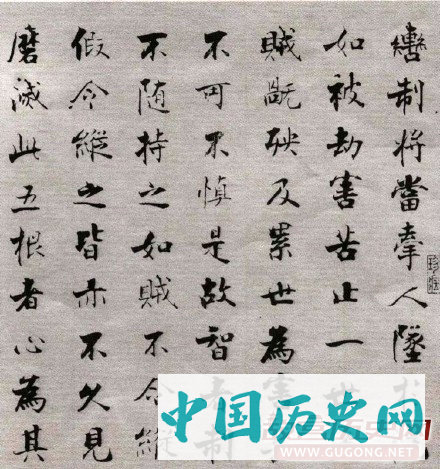 轡制将當牽人墜
如被劫害苦止一世
賊旤殃及累世為害
不可不慎是故智制
不随持之如賊不令縱
假令縱之皆亦不久見
磨滅此五根者心為其
中国历史网
WWW.GUGONG.NET